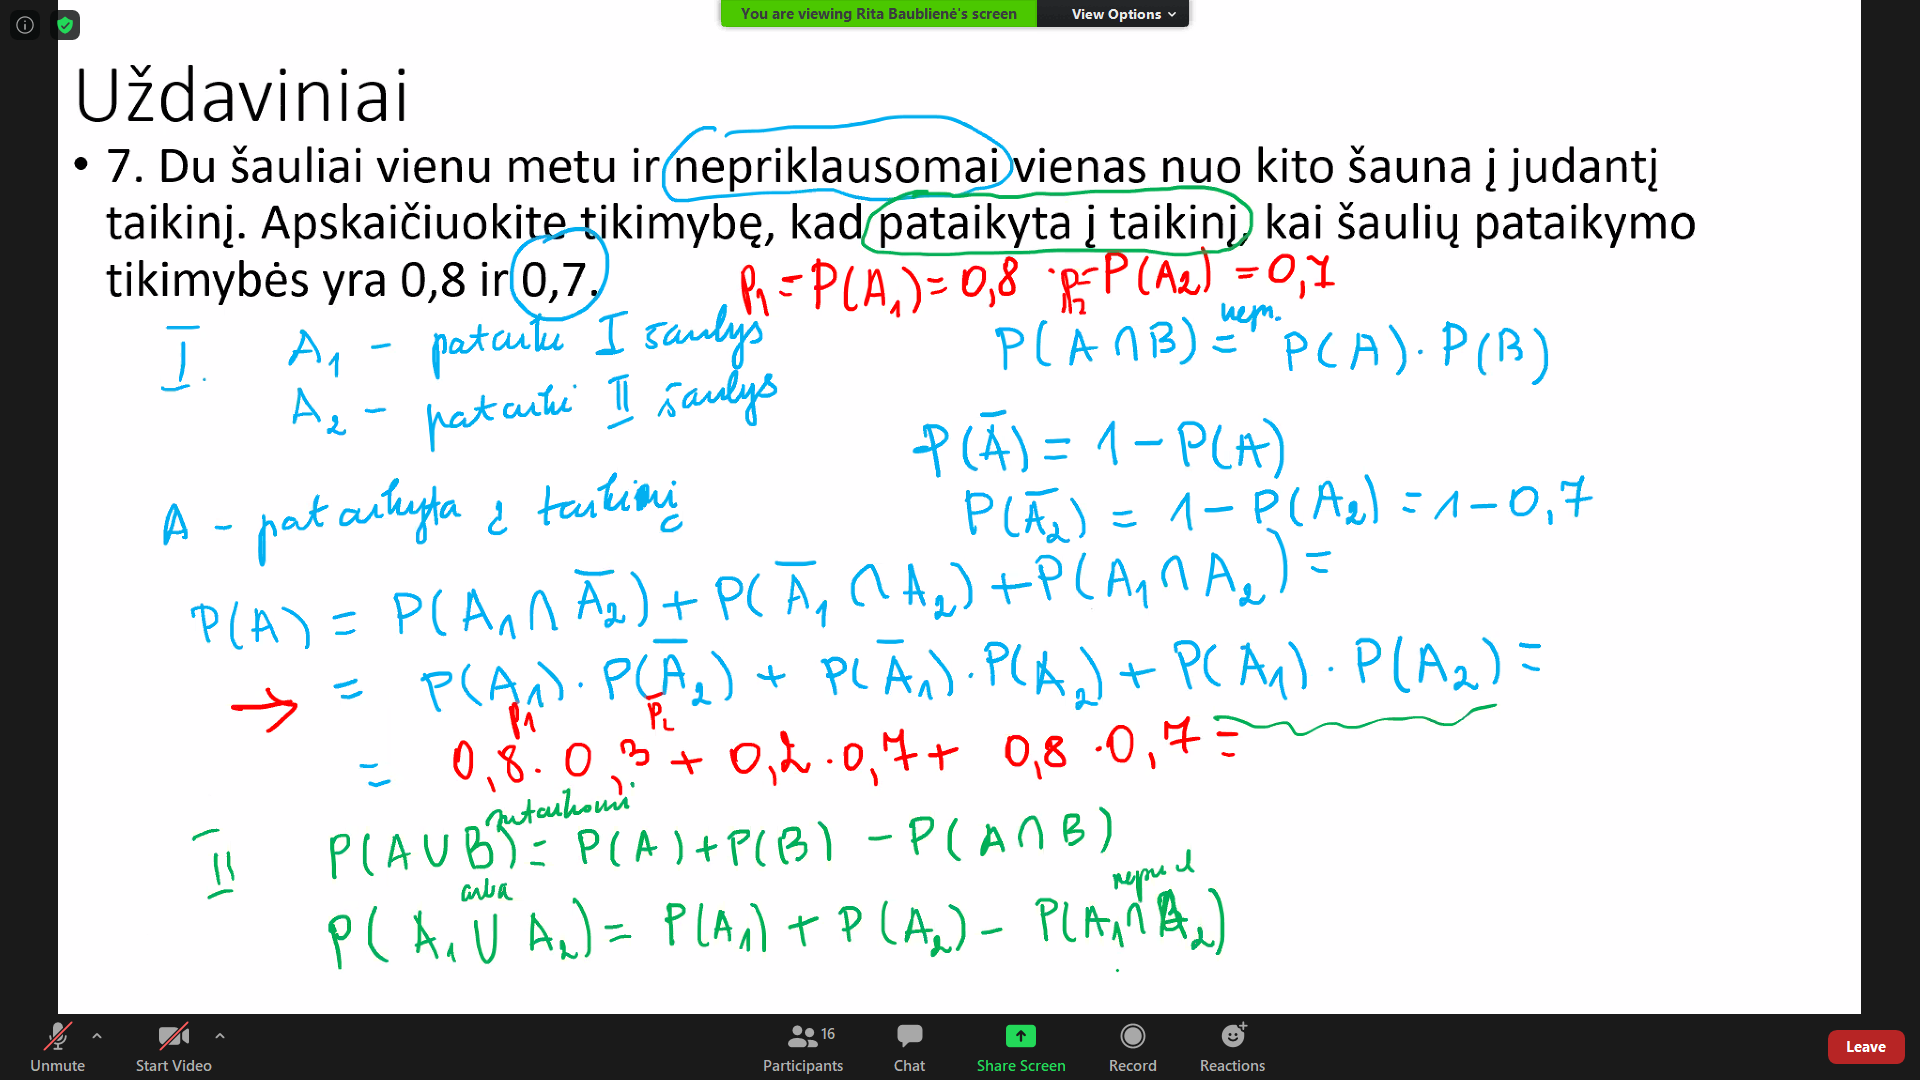 You are viewing Rita Baublienė's screen View Options
Uždaviniai
• 7. Du šauliai vienu metu ir nepriklausomai vienas nuo kito šauna į judantį
taikinį. Apskaičiuokite tikimybę, kad pataikyta į taikinį, kai šaulių pataikymo
tikimybės yra 0,8 ir 0,7.
p₁ = P(A₁) = 0,8 p₂ = P(A₂) = 0,7
I. A₁ – pataikė I šaulys
A₂ – pataikė II šaulys
nepr.
P(A∩B) = P(A)·P(B)
P(A̅) = 1 – P(A)
P(A̅₂) = 1 – P(A₂) = 1 – 0,7
A – pataikyta į taikinį
P(A) = P(A₁∩A̅₂) + P(A̅₁∩A₂) + P(A₁∩A₂) =
= P(A₁)·P(A̅₂) + P(A̅₁)·P(A₂) + P(A₁)·P(A₂) =
p₁ p̅₂
= 0,8·0,3 + 0,2·0,7 + 0,8·0,7 =
sutaikomi
II P(A∪B) = P(A) + P(B) – P(A∩B)
arba
P(A₁∪A₂) = P(A₁) + P(A₂) – P(A₁∩A₂)
Unmute Start Video Participants 16 Chat Share Screen Record Reactions Leave